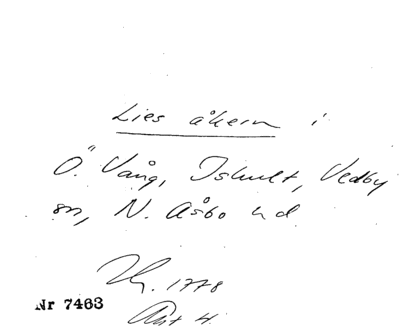 Lies åkern i
Ö. Vång, Ishult, Vedby
sn, N. Åsbo hd
1778
Akt 4.
Nr 7463